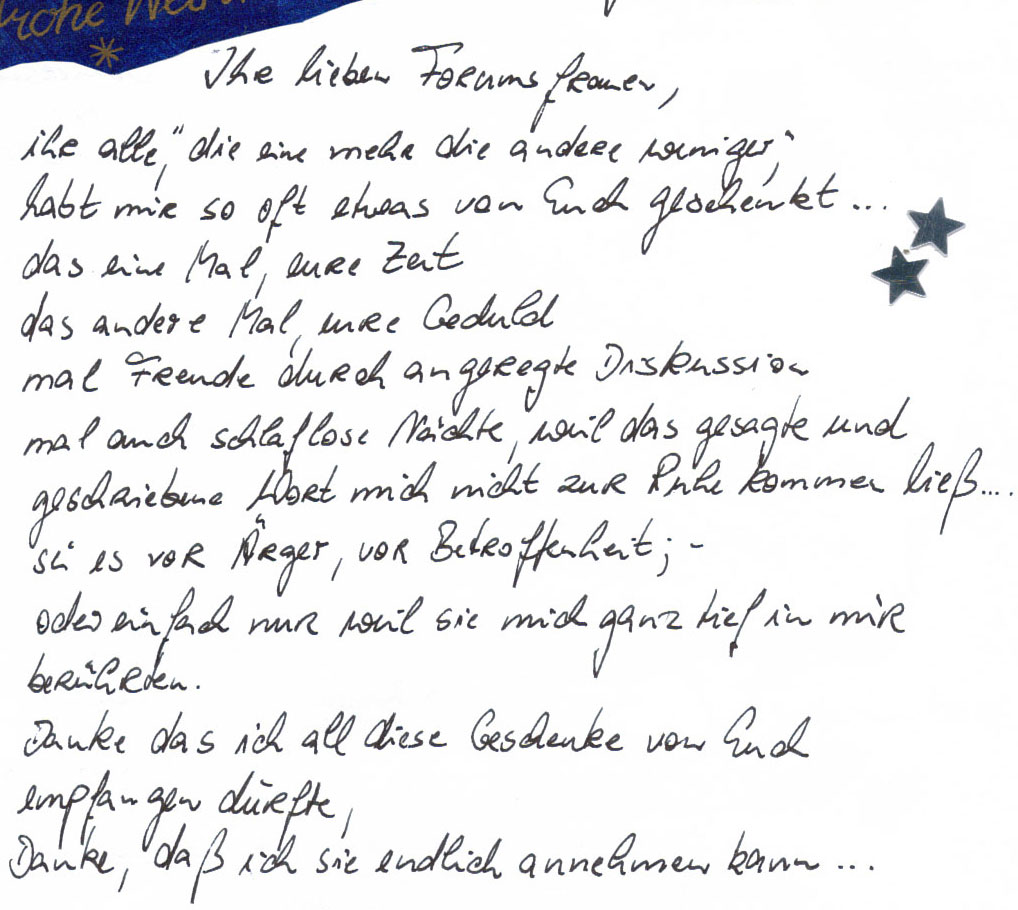 Frohe Weih
Ihr lieben Forumsfrauen,
ihr alle, "die eine mehr die andere weniger,"
habt mir so oft etwas von Euch geschenkt...
das eine Mal, eure Zeit
das andere Mal, eure Geduld
mal Freude durch angeregte Diskussion
mal auch schlaflose Nächte, weil das gesagte und
geschriebene Wort mich nicht zur Ruhe kommen ließ....
sei es vor Ärger, vor Betroffenheit; -
oder einfach nur weil sie mich ganz tief in mir
berührten.
Danke das ich all diese Geschenke von Euch
empfangen dürfte,
Danke, daß ich sie endlich annehmen kann...